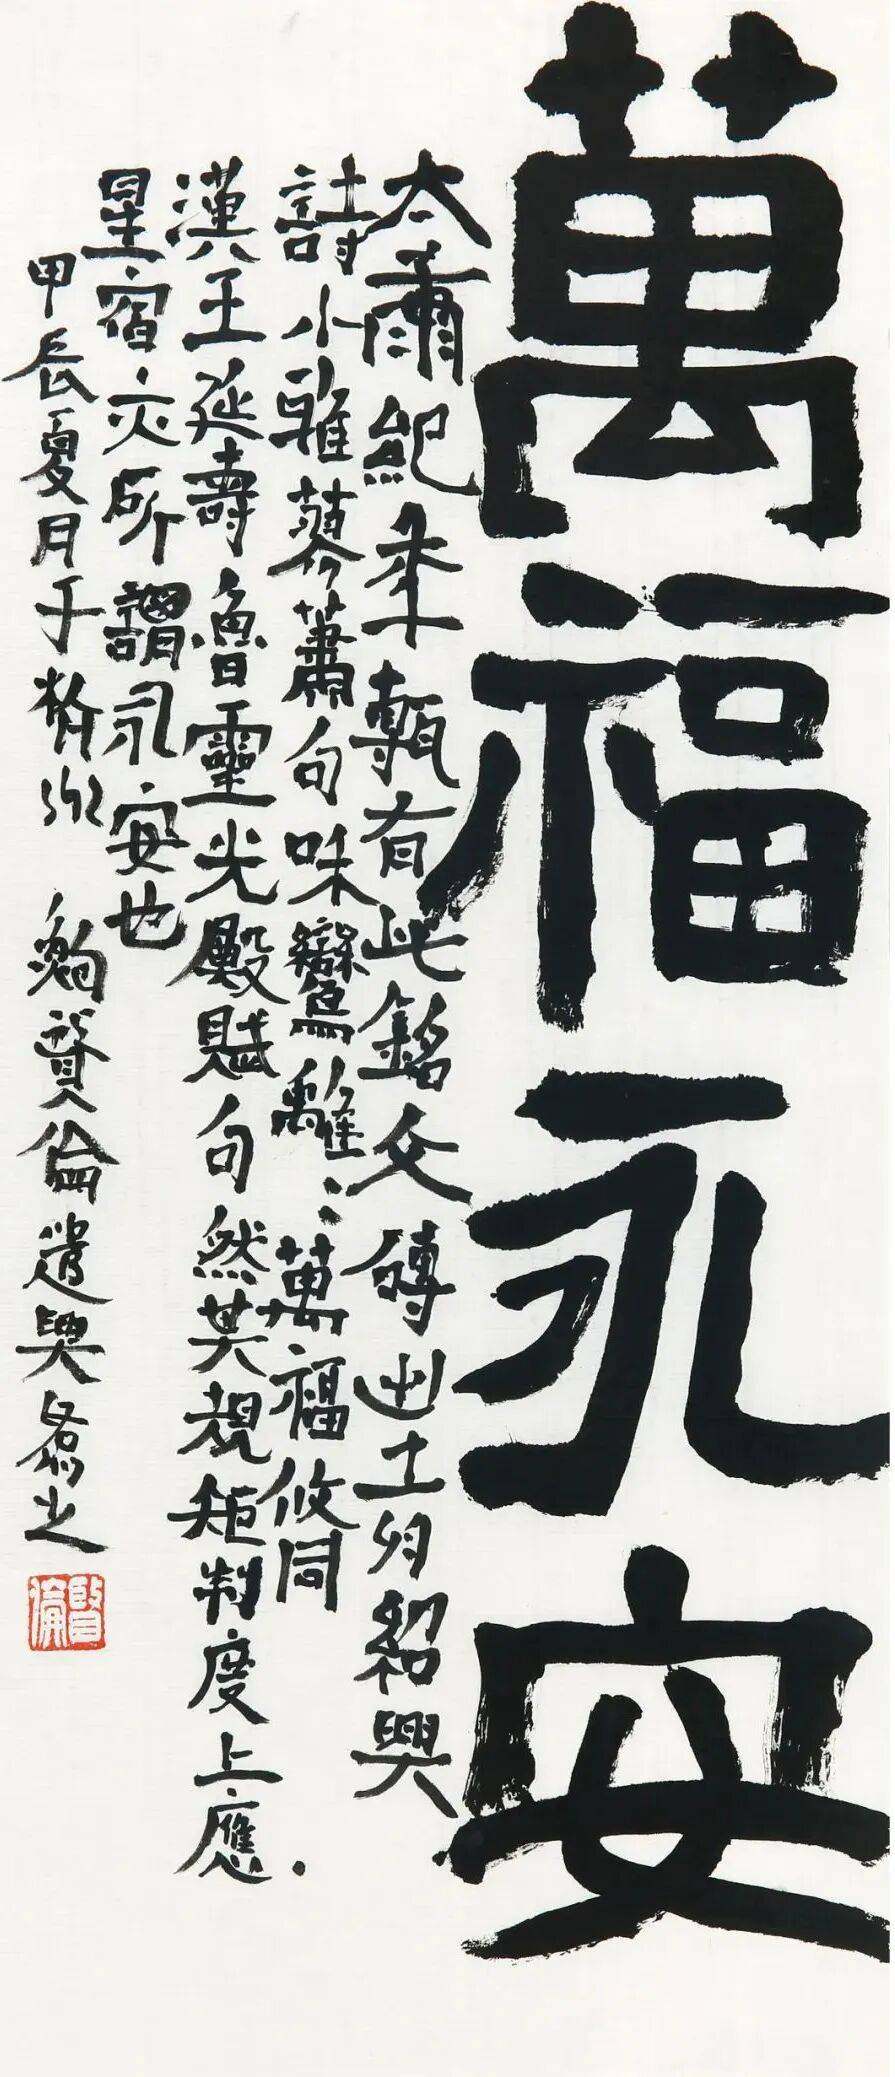 萬福永安
太紀年甎有此銘文磚出土於紹興
詩小雅蓼蕭句咊鸞雝〻萬福攸同
漢王延壽魯靈光殿賦句然其規矩制度上應
星宿亦所謂永安也
甲辰夏月于 鮑賢倫遣興為之
賢倫